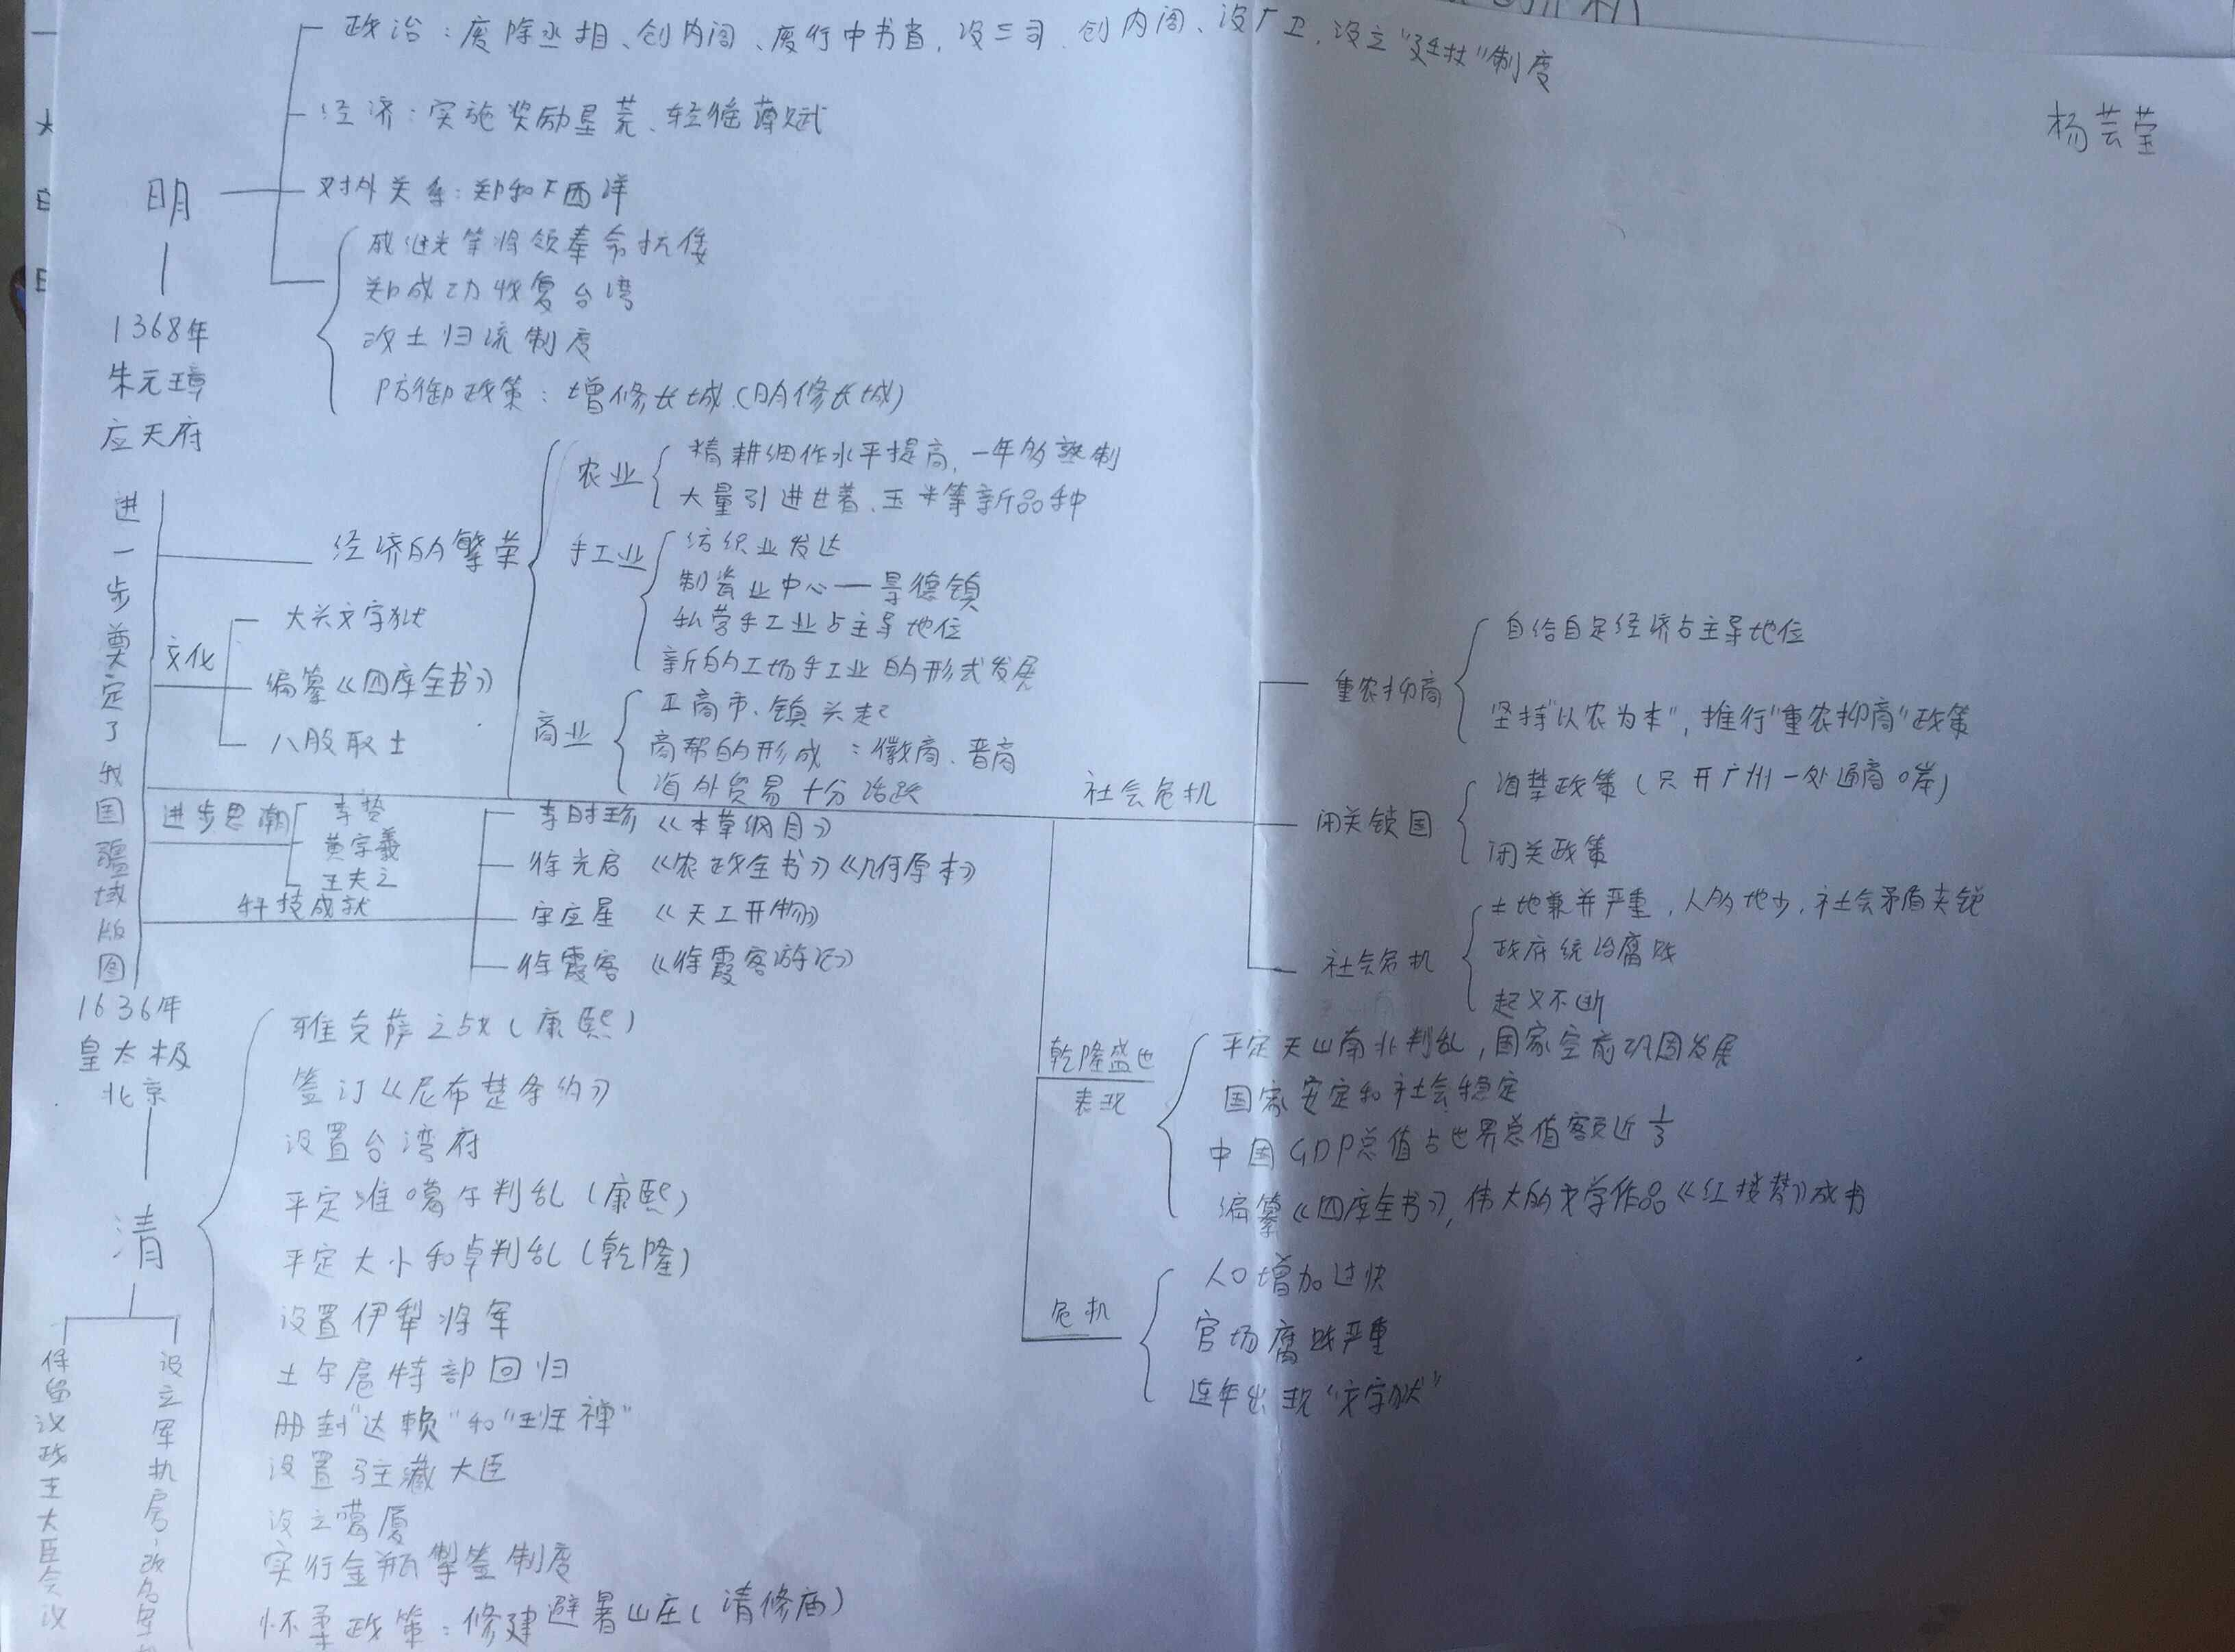 政治：废除丞相、创内阁、废行中书省，设三司、创内阁、设厂卫，设立“廷杖”制度
经济：实施奖励垦荒、轻徭薄赋
杨芸莹
明
对外关系：郑和下西洋
戚继光等将领奉命抗倭
郑成功收复台湾
改土归流制度
防御政策：增修长城（明修长城）
1368年
朱元璋
应天府
进一步奠定了我国疆域版图
经济的繁荣
农业
精耕细作水平提高，一年多熟制
大量引进甘薯、玉米等新品种
手工业
纺织业发达
制瓷业中心——景德镇
私营手工业占主导地位
新的工场手工业的形式发展
商业
工商市、镇兴起
商帮的形成：徽商、晋商
海外贸易十分活跃
文化
大兴文字狱
编纂《四库全书》
八股取士
进步思潮
李贽
黄宗羲
王夫之
科技成就
李时珍《本草纲目》
徐光启《农政全书》《几何原本》
宋应星《天工开物》
徐霞客《徐霞客游记》
社会危机
重农抑商
自给自足经济占主导地位
坚持“以农为本”，推行“重农抑商”政策
闭关锁国
海禁政策（只开广州一处通商口岸）
闭关政策
社会危机
土地兼并严重，人多地少，社会矛盾尖锐
政府统治腐败
起义不断
乾隆盛世
表现
平定天山南北判乱，国家空前巩固发展
国家安定和社会稳定
中国GDP总值占世界总值额近1/3
编纂《四库全书》，伟大的文学作品《红楼梦》成书
危机
人口增加过快
官场腐败严重
连年出现“文字狱”
1636年
皇太极
北京
清
雅克萨之战（康熙）
签订《尼布楚条约》
设置台湾府
平定准噶尔判乱（康熙）
平定大小和卓判乱（乾隆）
设置伊犁将军
土尔扈特部回归
册封“达赖”和“班禅”
设置驻藏大臣
设立噶厦
实行金瓶掣签制度
怀柔政策：修建避暑山庄（清修庙）
保留议政王大臣会议
设立军机房，改名军